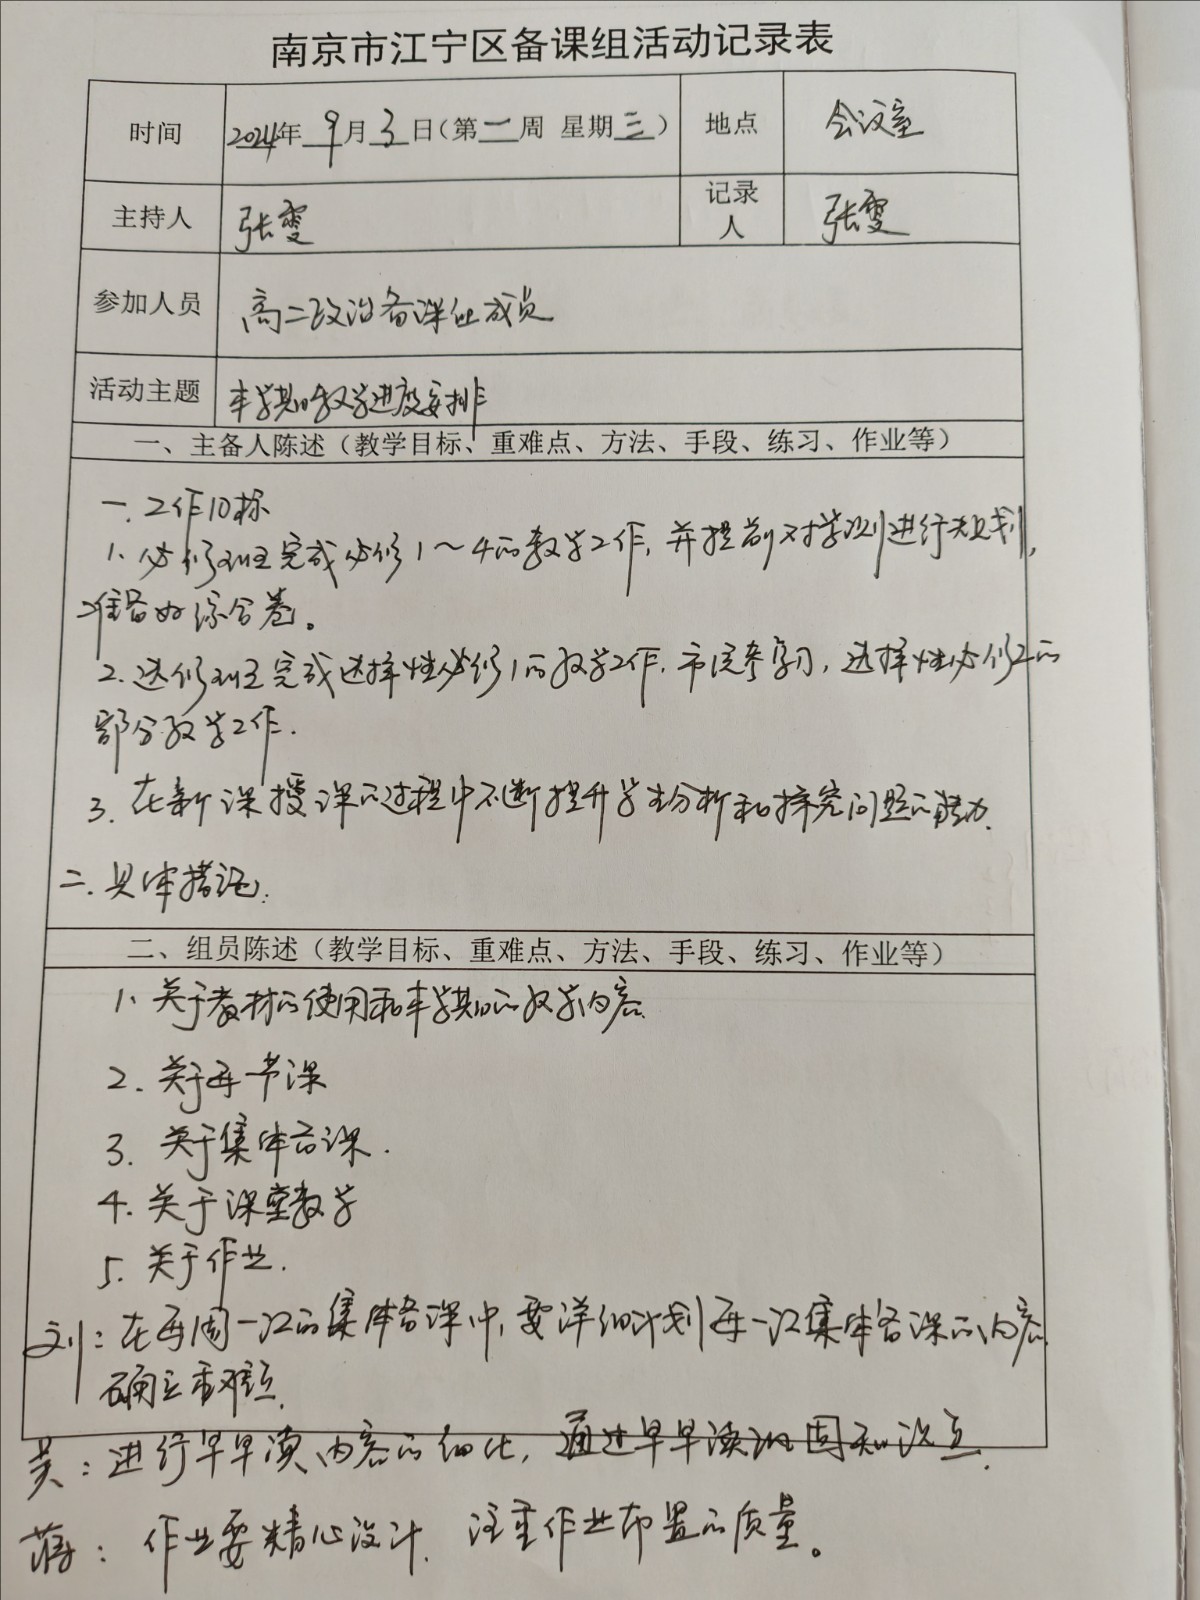 南京市江宁区备课组活动记录表
时间 2024年 9月 3日(第二周 星期三) 地点 会议室
主持人 张雯 记录人 张雯
参加人员 高二政治备课组成员
活动主题 本学期教学进度安排
一、主备人陈述（教学目标、重难点、方法、手段、练习、作业等）
一、工作目标
1、必修班完成必修1～4的教学工作，并提前对学测进行规划，
准备好综合卷。
2、选修班完成选择性必修1的教学工作，学习，选择性必修2的
部分教学工作.
3、在新课授课的过程中不断提升学生分析和探究问题的能力.
二、具体措施:
二、组员陈述（教学目标、重难点、方法、手段、练习、作业等）
1、关于教材的使用和本学期的教学内容
2、关于每一节课
3、关于集体备课.
4、关于课堂教学
5、关于作业.
刘：在每周一次的集体备课中，要详细计划每一次集体备课的内容,
确立重难点.
吴：进行早早读内容的细化，通过早早读巩固知识点.
蒋：作业要精心设计、注重作业布置的质量。